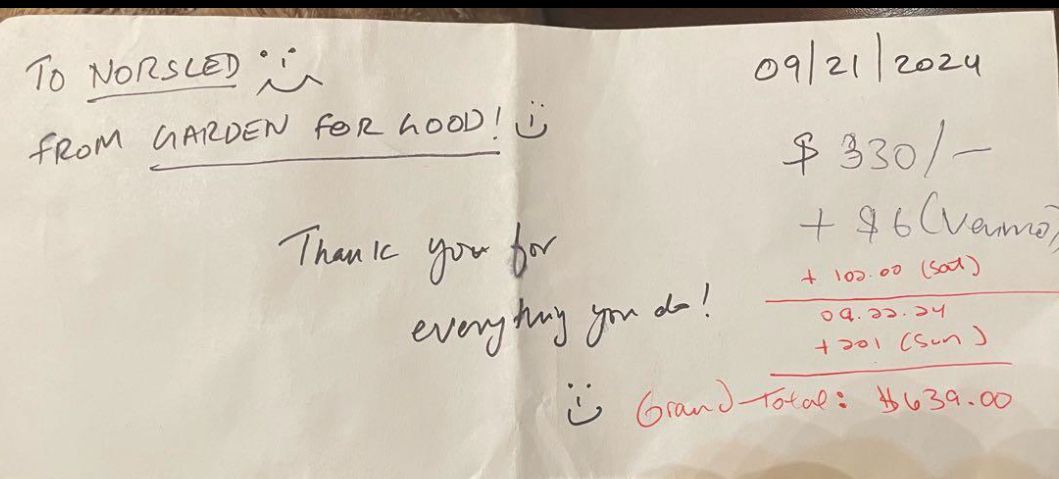 TO NORSLED
09/21/2024
FROM GARDEN FOR GOOD!
$ 330/-
+ $6 (Venmo)
Thank you for
everything you do!
+ 102.00 (Sat)
09.22.24
+ 201 (Sun)
Grand Total: $639.00